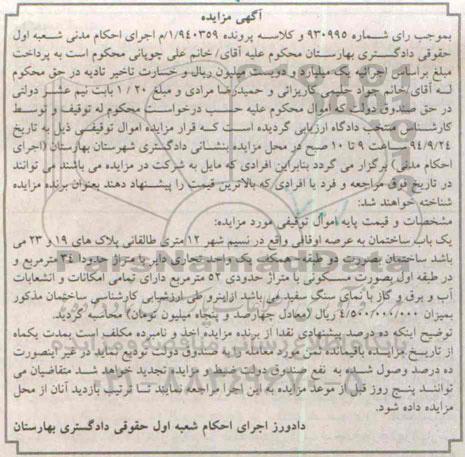 آگهی مزایده
بموجب رای شماره ۹۳۰۹۹۵ و کلاسه پرونده ۱/۹۴۰۳۵۹/م اجرای احکام مدنی شعبه اول
حقوقی دادگستری بهارستان محکوم علیه آقای/ خانم علی چوپانی محکوم است به پرداخت
مبلغ براساس اجرائیه یک میلیارد و دویست میلیون ریال و خسارت تاخیر تادیه در حق محکوم
له آقای/خانم جواد حلیمی کاریزاتی و حمیدرضا مرادی و مبلغ ۱/۲۰ بابت نیم عشر دولتی
در حق صندوق دولت که اموال محکوم علیه حسب درخواست محکوم له توقیف و توسط
کارشناس منتخب دادگاه ارزیابی گردیده است که قرار مزایده اموال توقیفی ذیل به تاریخ
۹۴/۹/۲۴ ساعت ۹ تا ۱۰ صبح در محل مزایده بنشانی دادگستری شهرستان بهارستان (اجرای
احکام مدنی) برگزار می گردد بنابراین افرادی که مایل به شرکت در مزایده می باشند می توانند
در تاریخ فوق مراجعه و فرد یا افرادی که بالاترین قیمت را پیشنهاد دهند بعنوان برنده مزایده
شناخته خواهند شد:
مشخصات و قیمت پایه اموال توقیفی مورد مزایده:
یک باب ساختمان به عرصه اوقافی واقع در نسیم شهر ۱۲ متری طالقانی پلاک های ۱۹ و ۲۳ می
باشد ساختمان بصورت دو طبقه- همکف یک واحد تجاری دایر با متراژ حدودا ۳۴ مترمربع و
در طبقه اول بصورت مسکونی با متراژ حدودی ۵۲ مترمربع دارای تمامی امکانات و انشعابات
آب و برق و گاز با نمای سنگ سفید می باشد ازاینرو طی ارزشیابی کارشناسی ساختمان مذکور
بمیزان ۴/۵۰۰/۰۰۰/۰۰۰ ریال (معادل چهارصد و پنجاه میلیون تومان) محاسبه گردید.
توضیح اینکه ده درصد پیشنهادی نقدا از برنده مزایده اخذ و نامبرده مکلف است بمدت یکماه
از تاریخ مزایده باقیمانده ثمن مورد معامله را به صندوق دولت تودیع نماید در غیر اینصورت
ده درصد وصول شده به نفع صندوق دولت ضبط و مزایده تجدید خواهد شد متقاضیان می
توانند پنج روز قبل از موعد مزایده به این اجرا مراجعه نمایند تا ترتیب بازدید آنان از محل
مزایده داده شود.
دادورز اجرای احکام شعبه اول حقوقی دادگستری بهارستان